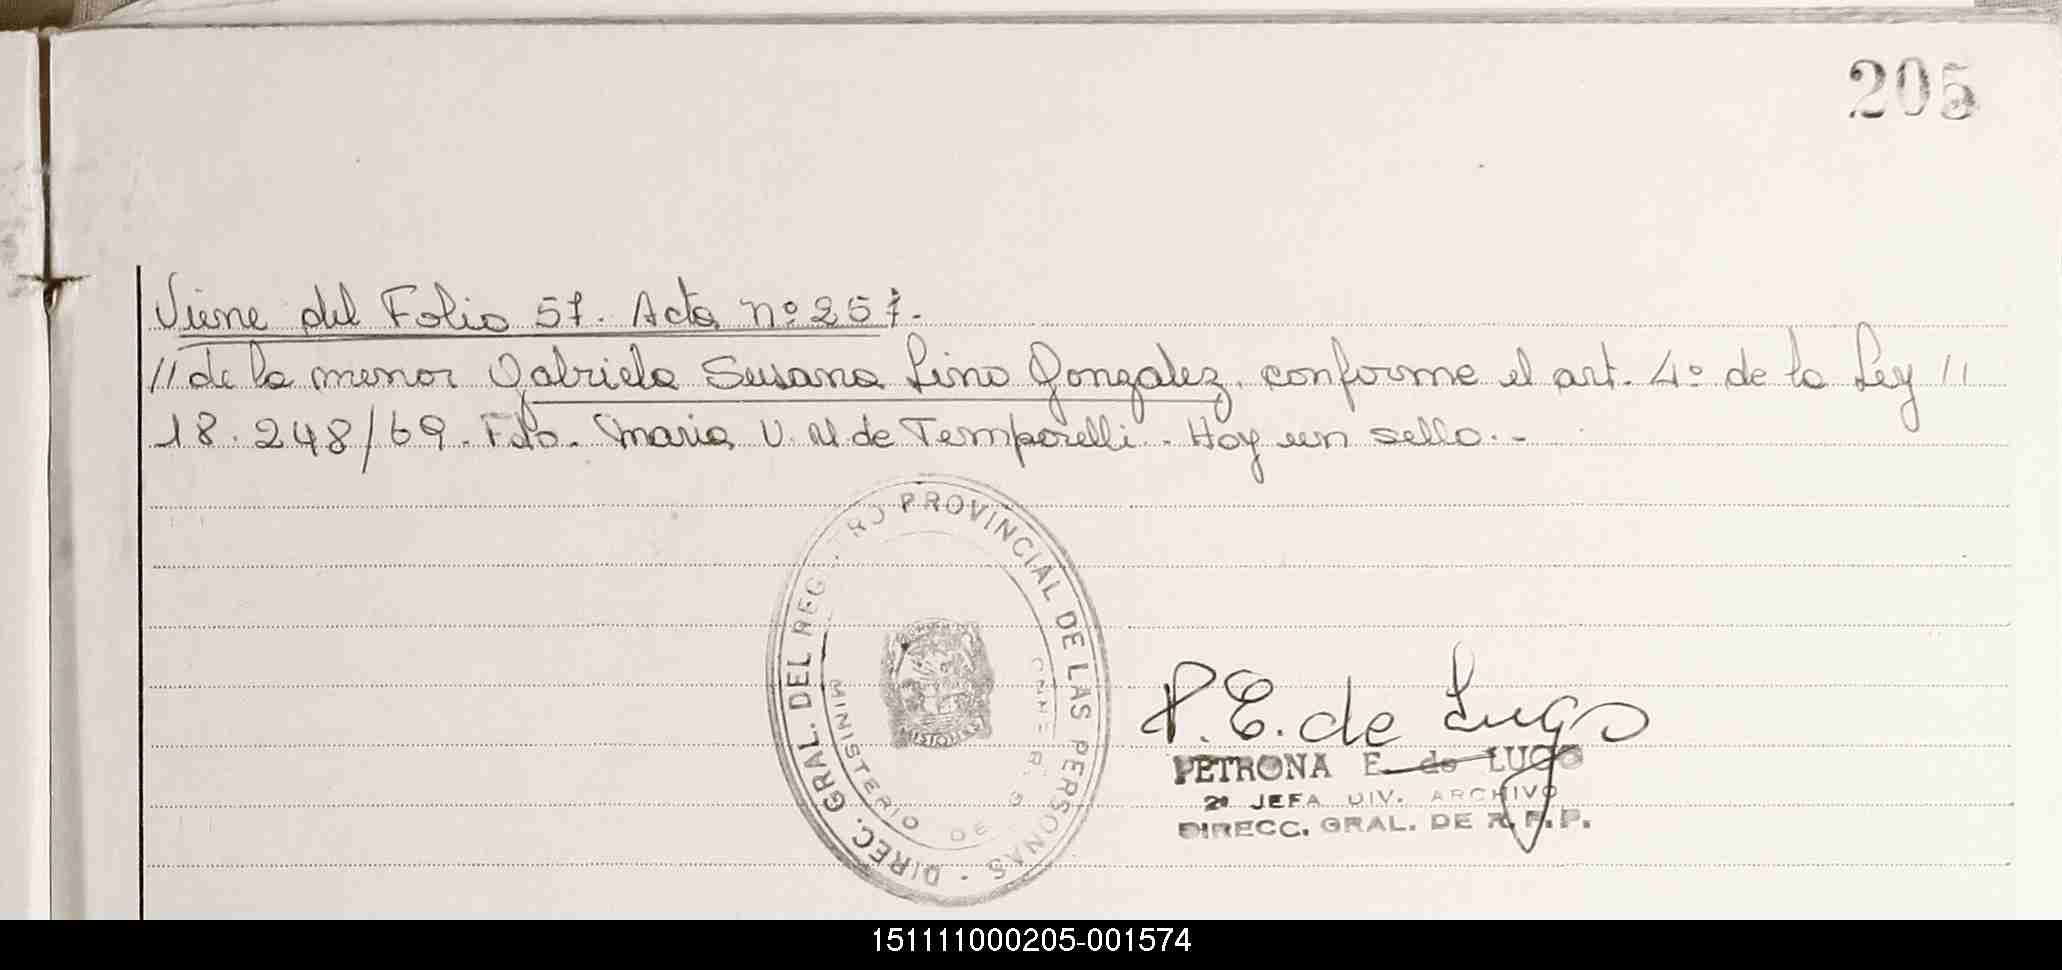 205
Viene del Folio 57. Acta nº 257.
// de la menor Gabriela Susana Lino Gonzalez, conforme el art. 4º de la Ley //
18.248/69. Fdo. Maria U. N de Temporelli. - Hay un sello. -
DIREC. GRAL. DEL REG PROVINCIAL DE LAS PERSONAS -
MINISTERIO DE G
MISIONES
P. E. de Lugo
PETRONA E. de LUGO
2ª JEFA DIV. ARCHIVO
DIRECC. GRAL. DE R. P. P.
151111000205-001574